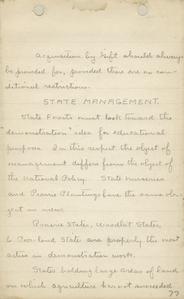 Acquisition by gift should always
be provided for, provided there are no con-
ditional restrictions.
STATE MANAGEMENT.
State Forests must look toward the
demonstration idea for educational
purpose. In this respect the object of
management differs from the object of
the National Policy. State nurseries
and Prairie Plantings have the same obj-
ect in view.
Prairie States, Woodlot States,
& Poor land State are properly the most
active in demonstration work.
States holding large areas of land
on which agriculture has not succeeded